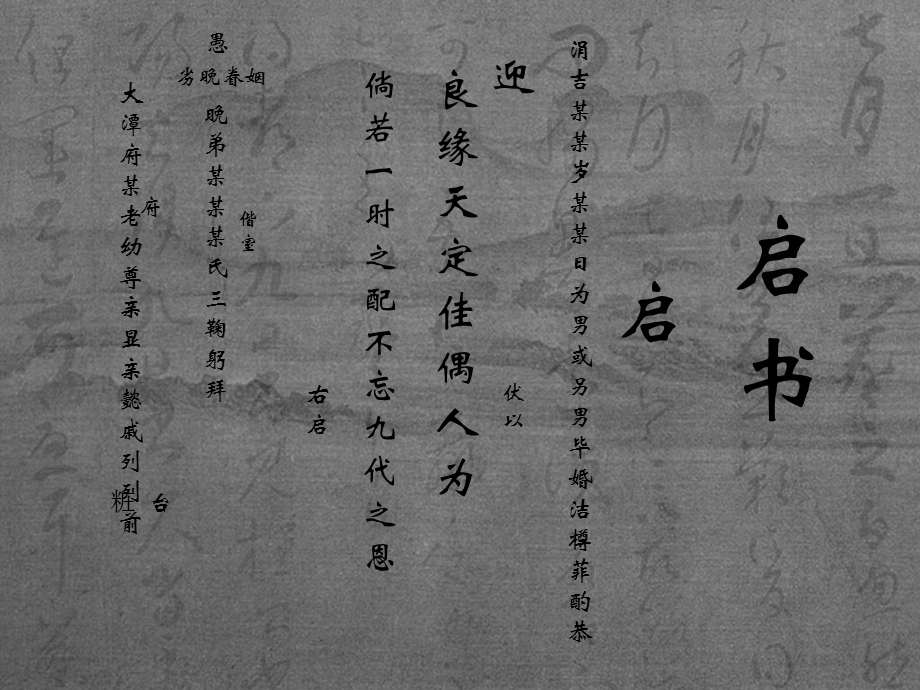 启书
启
涓吉某某岁某某日为男或另男毕婚洁樽菲酌恭
迎
伏以
良缘天定佳偶人为
倘若一时之配不忘九代之恩
右启
姻眷晚劣
偕室
愚
晚弟某某某氏三鞠躬拜
府
大潭府某老幼尊亲显亲懿戚列列前
台
粧